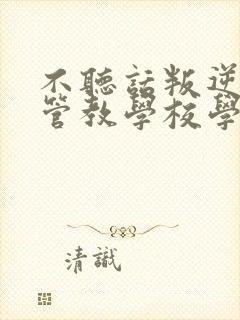 不聽話叛逆
管教學校學
清識